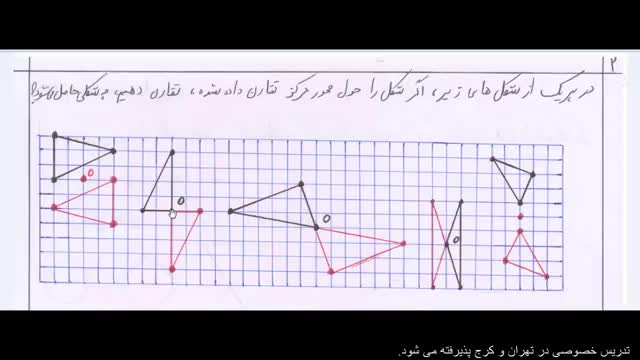 ۲
در هریک از شکل های زیر، اگر شکل را حول محور مرکز تقارن داده شده، تقارن دهیم، چه شکلی حاصل می شود؟
o o o o
تدریس خصوصی در تهران و کرج پذیرفته می شود.